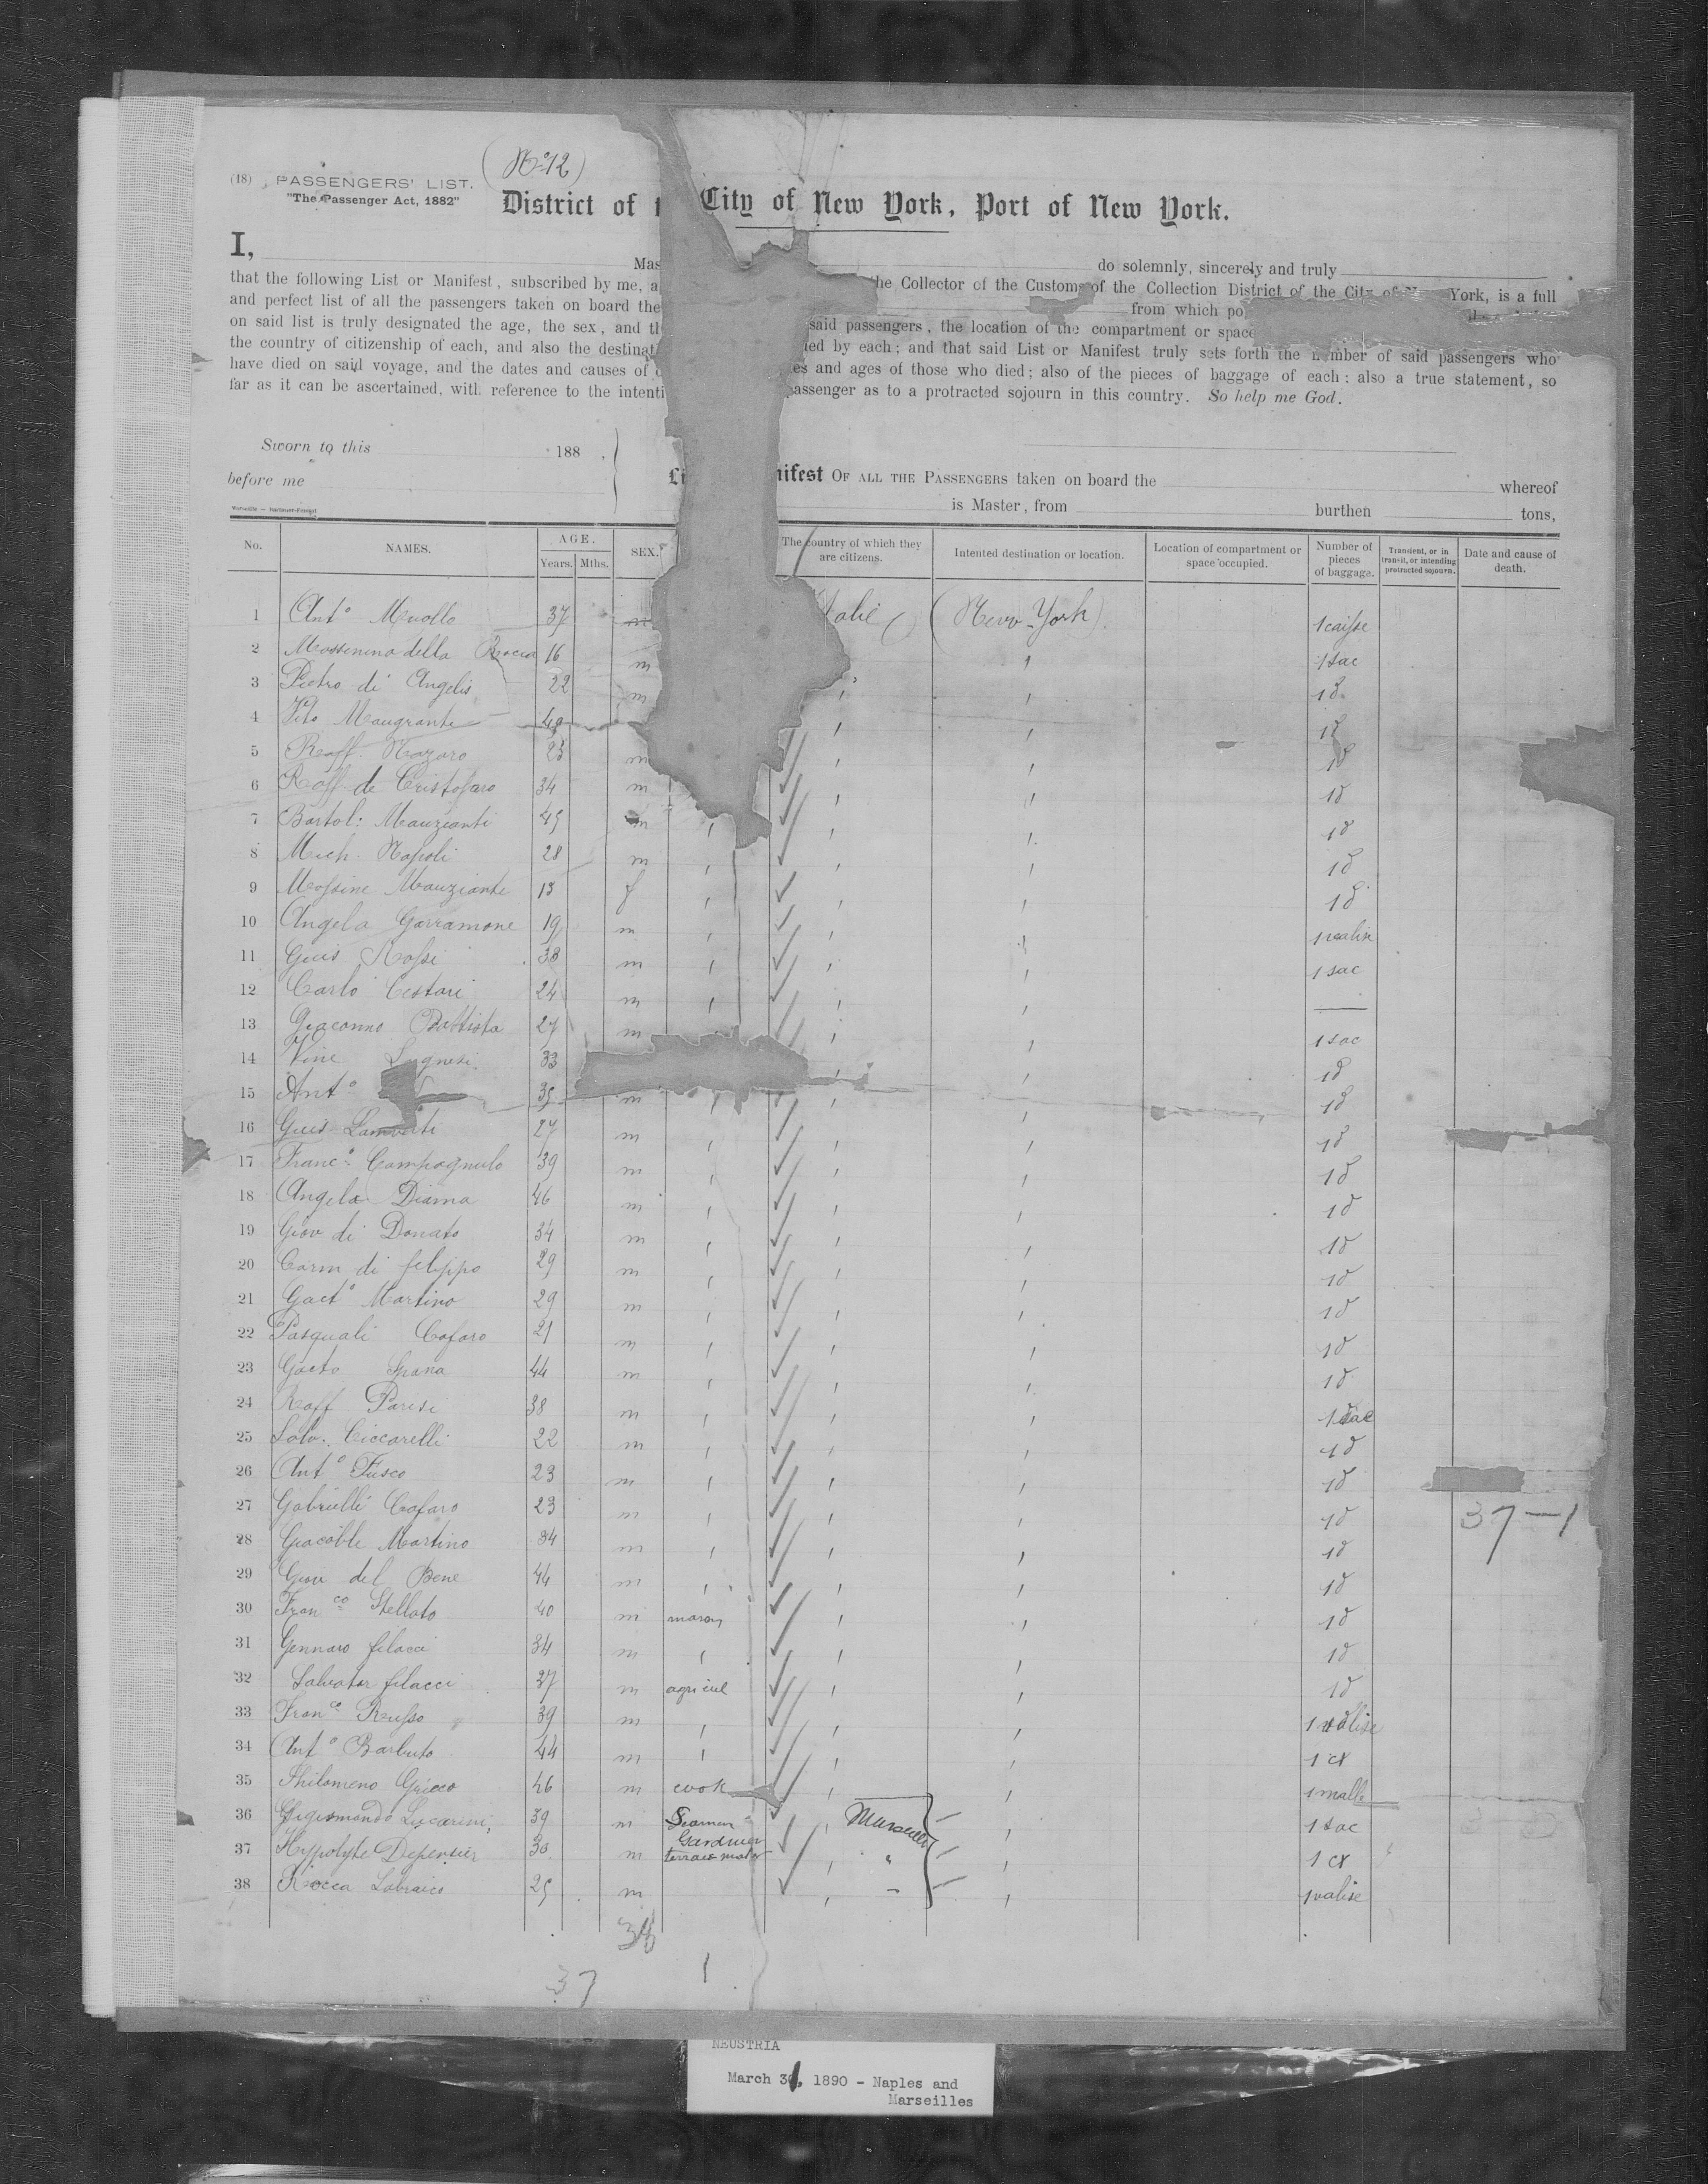 (No 12)
(18) PASSENGERS' LIST.
"The Passenger Act, 1882"
District of t City of New York, Port of New York.
I, Mas do solemnly, sincerely and truly
that the following List or Manifest, subscribed by me, a he Collector of the Customs of the Collection District of the City of New York, is a full
and perfect list of all the passengers taken on board the from which po
on said list is truly designated the age, the sex, and th said passengers, the location of the compartment or space
the country of citizenship of each, and also the destinat ied by each; and that said List or Manifest truly sets forth the number of said passengers who
have died on said voyage, and the dates and causes of d es and ages of those who died; also of the pieces of baggage of each: also a true statement, so
far as it can be ascertained, with reference to the intenti passenger as to a protracted sojourn in this country. So help me God.
Sworn to this 188 .
before me
Li nifest OF ALL THE PASSENGERS taken on board the whereof
is Master, from burthen tons,
No. NAMES. AGE. Years. Mths. SEX. The country of which they are citizens. Intented destination or location. Location of compartment or space occupied. Number of pieces of baggage. Transient, or in transit, or intending protracted sojourn. Date and cause of death.
1 Anto Muollo 37 m talie (New-York) 1 caisse
2 Massenino della Rocca 16 m " 1 sac
3 Pietro di Angelis 22 m " " 1 d
4 Vito Maugrante 49 " " 1 d
5 Raff. Nazaro 23 m " " 1 d
6 Raff de Cristofaro 34 m " " 1 d
7 Bartol: Mauzianti 45 m " " " 1 d
8 Mich. Napoli 28 m " " " 1 d
9 Massine Mauziante 13 f " " " 1 d
10 Angela Garramone 19 m " " 1 valise
11 Guis Rossi 38 m " " " 1 sac
12 Carlo Cestari 24 m " " " —
13 Giacomo Battista 27 m " " 1 sac
14 Vinc Lagnesi 33 " " 1 d
15 Anto 35 m " " 1 d
16 Guis Lamberti 27 m " " " 1 d
17 Franco Campagnulo 39 m " " " 1 d
18 Angelo Diama 46 m " " " 1 d
19 Giov di Donato 34 m " " " 1 d
20 Carm di filippo 29 m " " " 1 d
21 Gaeto Martino 29 m " " " 1 d
22 Pasquali Cafaro 21 m " " " 1 d
23 Gaeto Spana 44 m " " " 1 d
24 Raff Parisi 38 m " " " 1 sac
25 Salv. Ciccarelli 22 m " " " 1 d
26 Anto Fusco 23 m " " " 1 d
27 Gabrielli Cafaro 23 m " " " 1 d 37—1
28 Giacobbe Martino 34 m " " " 1 d
29 Giov del Bene 44 m " " " 1 d
30 Franco Stellato 40 m maçon " " 1 d
31 Gennaro filacci 34 m " " " 1 d
32 Salvator filacci 37 m agricul " " 1 d
33 Franco Russo 39 m " " " 1 valise
34 Anto Barbuto 44 m " " " 1 cx
35 Philomeno Gricco 46 m cook " " 1 malle
36 Gigismondo Luccarini, 39 m Seamen " Marseille " 1 sac
37 Hypolyte Depensier 30 m Gardner " " " 1 cx
38 Rocca Labraico 25 m " " " 1 valise
38
37 1
NEUSTRIA
March 31, 1890 - Naples and
Marseilles